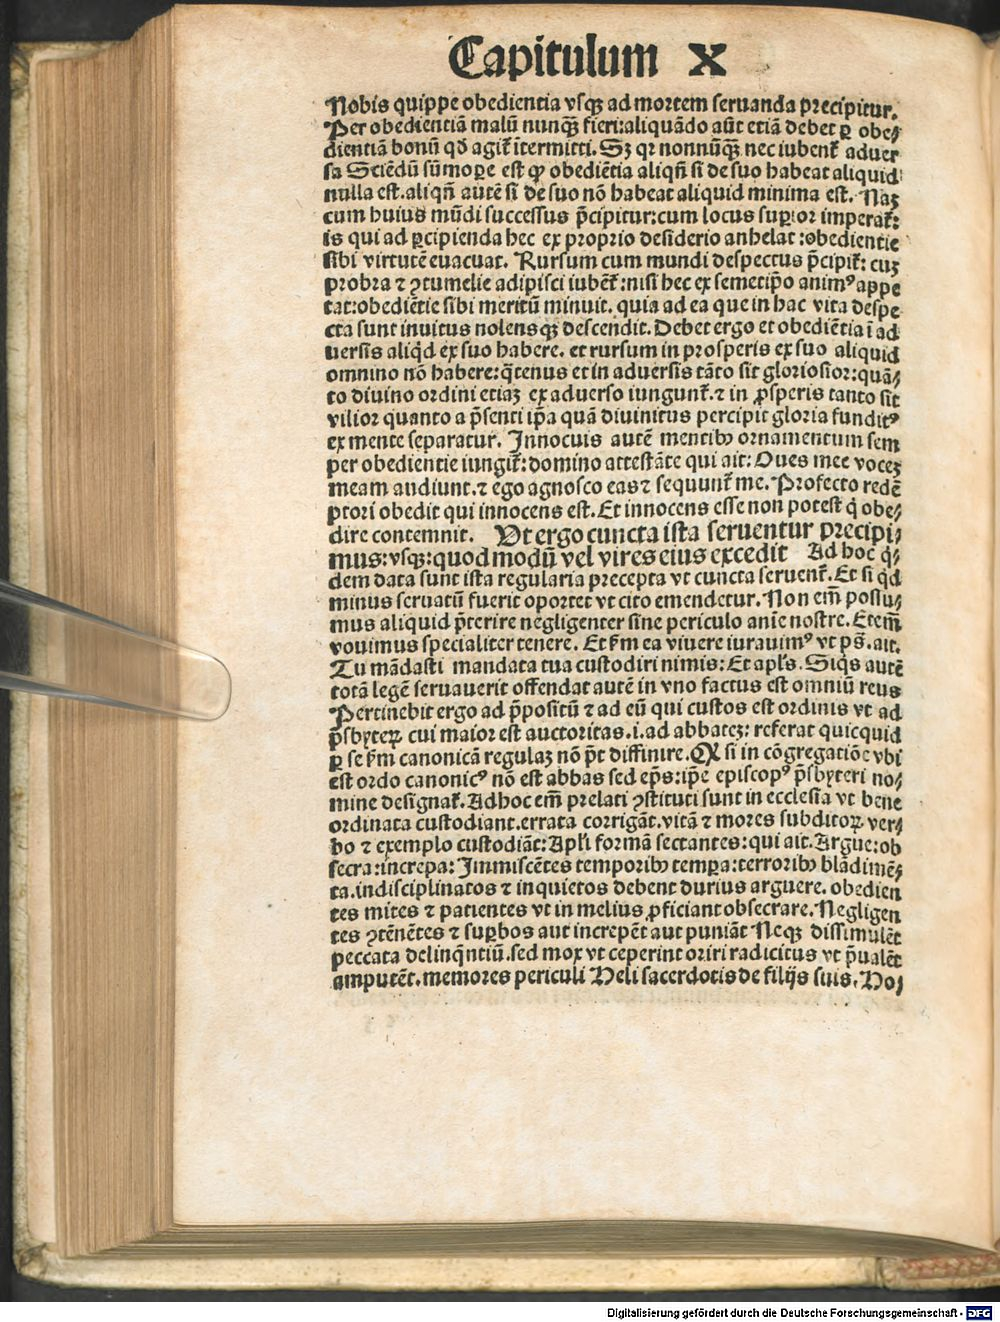 Capitulum X
Nobis quippe obedientia vsqꝫ ad mortem seruanda precipitur.
Per obedientiā malū nunqꝫ fieri:aliquādo aūt etiā debet ꝑ obe⸗
dientiā bonū qđ agiť ītermitti. Sꝫ qꝛ nonnūqꝫ nec iubenť aduer
sa Sciēdū sūmopere est ꝙ obediētia aliqñ si de suo habeat aliquid
nulla est.aliqñ autē si de suo nō habeat aliquid minima est. Naꝫ
cum huius mūdi successus p̄cipitur:cum locus supīor imperať:
is qui ad ꝑcipienda hec ex proprio desiderio anhelat:obedientie
sibi virtutē euacuat. Rursum cum mundi despectus p̄cipiť: cuꝫ
probra ⁊ ꝯtumelie adipisci iubēť:nisi hec ex semetip̄o animꝰ appe
tat:obediētie sibi meritū minuit. quia ad ea que in hac vita despe
cta sunt inuitus nolensqꝫ descendit. Debet ergo et obediētia ī ad
uersis aliq̄d ex suo habere. et rursum in prosperis ex suo aliquid
omnino nō habere:q̄tenus et in aduersis tāto sit gloriosior:quā⸗
to diuino ordini etiaꝫ ex aduerso iungunť.⁊ in ꝓsperis tanto sit
vilior quanto a p̄senti ip̄a quā diuinitus percipit gloria funditꝰ
ex mente separatur. Innocuis autē mentibꝰ ornamentum sem
per obedientie iungiť:domino attestāte qui ait: Oues mee voceꝫ
meam audiunt.⁊ ego agnosco eas ⁊ sequunť me. Profecto redē
ptori obedit qui innocens est. Et innocens esse non potest q̇ obe⸗
dire contemnit. Vt ergo cuncta ista seruentur precipi⸗
mus:vsqꝫ:quod modū vel vires eius excedit Ad hoc q̇⸗
dem data sunt ista regularia precepta vt cuncta seruenť. Et si q̇d
minus seruatū fuerit oportet vt cito emendetur. Non em̄ possu⸗
mus aliquid p̄terire negligenter sine periculo anie nostre. Etem̄
vouimus specialiter tenere. Et ẜm ea viuere iurauimꝰ vt ps̄. ait.
Tu mādasti mandata tua custodiri nimis: Et apl's. Siq̇s autē
totā legē seruauerit offendat autē in vno factus est omniū reus
Pertinebit ergo ad p̄positū ⁊ ad eū qui custos est ordinis vt ad
p̄sbyteꝝ cui maior est auctoritas.i.ad abbateꝫ: referat quicquid
ꝑ se ẜm canonicā regulaꝫ nō p̄t diffinire. Qꝫ si in cōgregatiōe vbi
est ordo canonicꝰ nō est abbas sed ep̄s:ip̄e episcopꝰ p̄sbyteri no⸗
mine designať. Ad hoc em̄ prelati ꝯstituti sunt in ecclesia vt bene
ordinata custodiant.errata corrigāt.vitā ⁊ mores subditoꝝ ver⸗
bo ⁊ exemplo custodiāt: Apl'i formā sectantes: qui ait. Argue:ob
secra:increpa: Immiscētes temporibꝰ tempꝑa:terroribꝰ blādimē⸗
ta.indisciplinatos ⁊ inquietos debent durius arguere. obedien
tes mites ⁊ patientes vt in melius ꝓficiant obsecrare. Negligen
tes ꝯtēnētes ⁊ suꝑbos aut increpēt aut puniāt Neqꝫ dissimulēt
peccata delinq̄ntiū.sed mox vt ceperint oriri radicitus vt p̄ualēt
amputēt.memores periculi Heli sacerdotis de filijs suis. Ho⸗
Digitalisierung gefördert durch die Deutsche Forschungsgemeinschaft - DFG